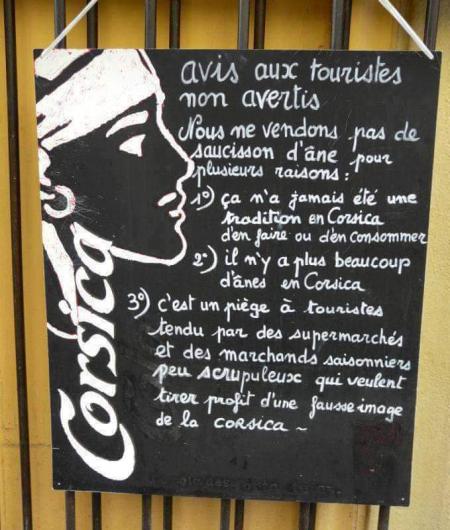 avis aux touristes
non avertis
Nous ne vendons pas de
saucisson d'âne pour
plusieurs raisons :
1°) ça n'a jamais été une
tradition en Corsica
d'en faire ou d'en consommer
2°) il n'y a plus beaucoup
d'ânes en Corsica
3°) c'est un piège à touristes
tendu par des supermarchés
et des marchands saisonniers
peu scrupuleux qui veulent
tirer profit d'une fausse image
de la CORSICA ~
Corsica